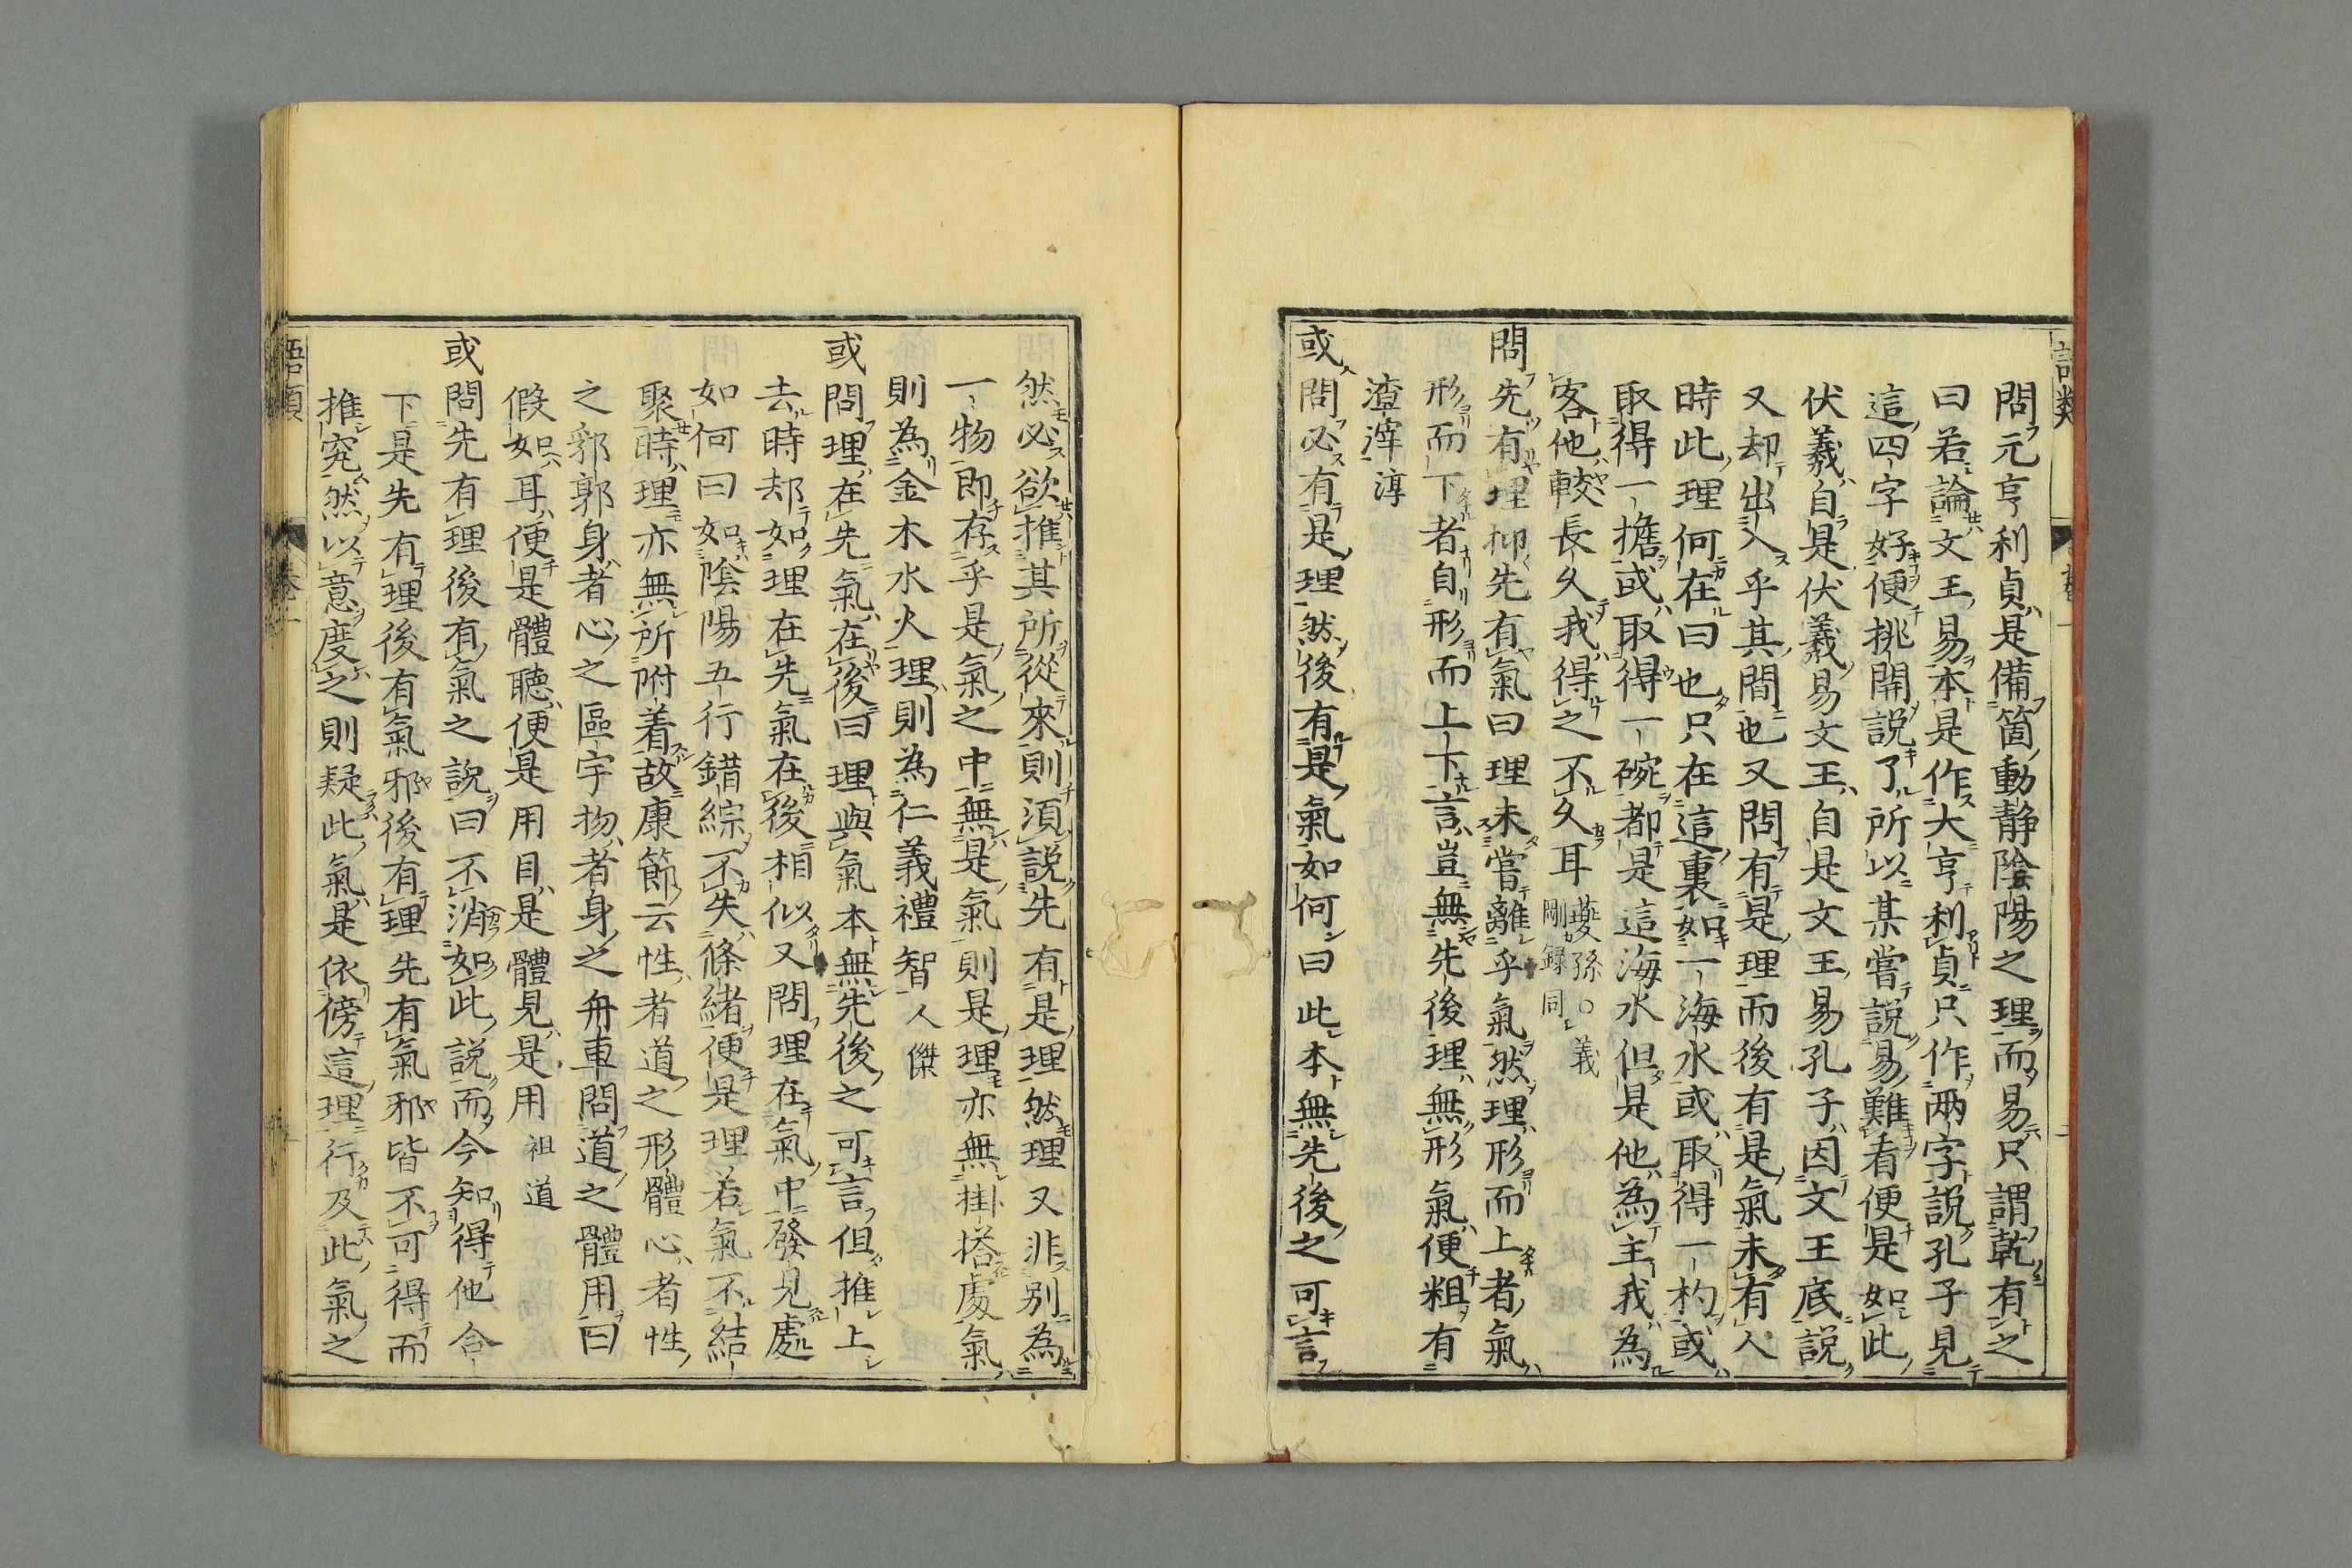 問元亨利貞是備箇動静陰陽之理而易只謂乾有之
曰若論文王易本是作大亨利貞只作兩字說孔子見
這四字好便挑開說了所以某嘗說易難看便是如此
伏羲自是伏羲易文王自是文王易孔子因文王底說
又却出入乎其間也又問有是理而後有是氣未有人
時此理何在曰也只在這裏如一海水或取得一杓或
取得一擔或取得一碗都是這海水但是他為主我為
客他較長久我得之不久耳
夔孫○義
剛録同
問先有理抑先有氣曰理未嘗離乎氣然理形而上者氣
形而下者自形而上下言豈無先後理無形氣便粗有
渣滓 淳
或問必有是理然後有是氣如何曰此本無先後之可言
然必欲推其所從來則須說先有是理然理又非別為
一物即存乎是氣之中無是氣則是理亦無掛搭處氣
則為金木水火理則為仁義禮智 人傑
或問理在先氣在後曰理與氣本無先後之可言但推上
去時却如理在先氣在後相似又問理在氣中發見處
如何曰如陰陽五行錯綜不失條緒便是理若氣不結
聚時理亦無所附着故康節云性者道之形體心者性
之郛郭身者心之區宇物者身之舟車問道之體用曰
假如耳便是體聽便是用目是體見是用 祖道
或問先有理後有氣之說曰不消如此說而今知得他合
下是先有理後有氣邪後有理先有氣邪皆不可得而
推究然以意度之則疑此氣是依傍這理行及此氣之
語類
卷一